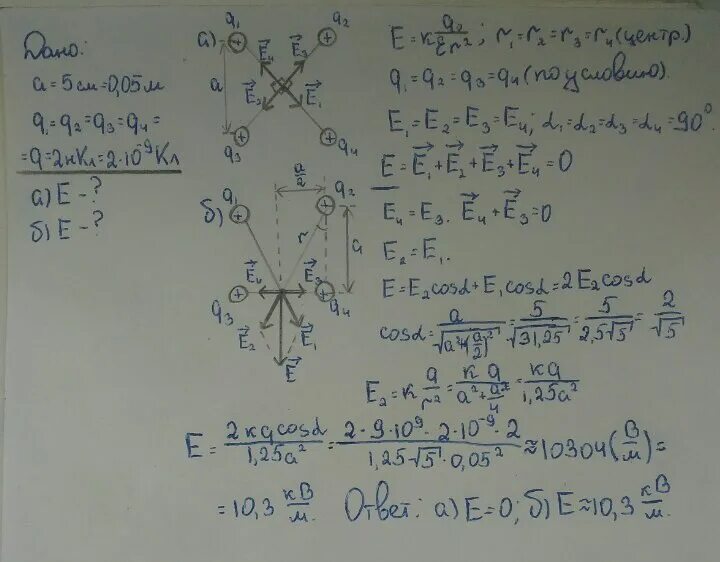 Дано:
a = 5 см = 0,05 м
q₁ = q₂ = q₃ = q₄ =
= q = 2 нКл = 2·10⁻⁹ Кл
а) E - ?
б) E - ?
а)
q₁
q₂
E⃗₄
E⃗₃
a
E⃗₂
E⃗₁
q₃
q₄
a/2
б)
q₁
q₂
r
a
E⃗₄
E⃗₃
q₃
q₄
E⃗₂
E⃗₁
E⃗
E = k q₀/εr²; r₁ = r₂ = r₃ = r₄ (центр.)
q₁ = q₂ = q₃ = q₄ (по условию).
E₁ = E₂ = E₃ = E₄; α₁ = α₂ = α₃ = α₄ = 90°.
E = E⃗₁ + E⃗₂ + E⃗₃ + E⃗₄ = 0
E₄ = E₃. E⃗₄ + E⃗₃ = 0
E₂ = E₁.
E = E₂cosα + E₁cosα = 2E₂cosα
cosα = a/√(a²+(a/2)²) = 5/√31,25 = 5/(2,5√5) = 2/√5
E₂ = k q/r² = kq/(a² + a²/4) = kq/1,25a²
E = 2kqcosα/1,25a² = (2·9·10⁹·2·10⁻⁹·2)/(1,25·√5·0,05²) ≈ 10304 (В/м) =
= 10,3 кВ/м. Ответ: а) E = 0; б) E ≈ 10,3 кВ/м.